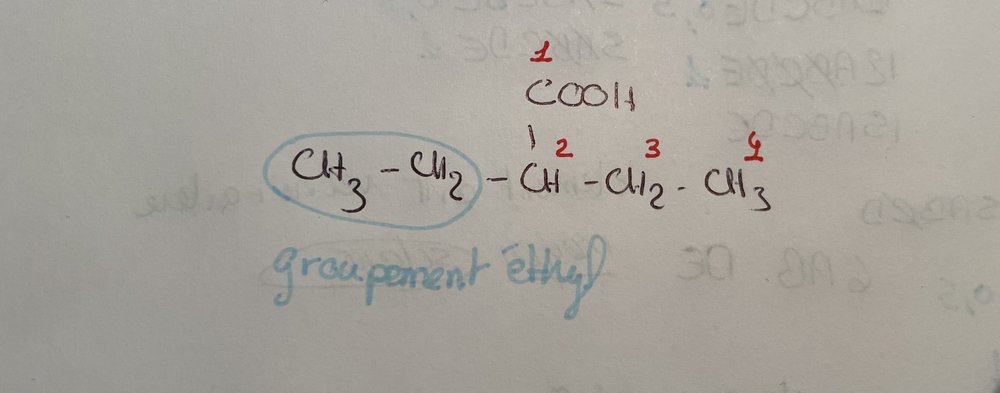 1
COOH
2 3 4
CH3 - CH2 - CH - CH2 - CH3
groupement éthyl